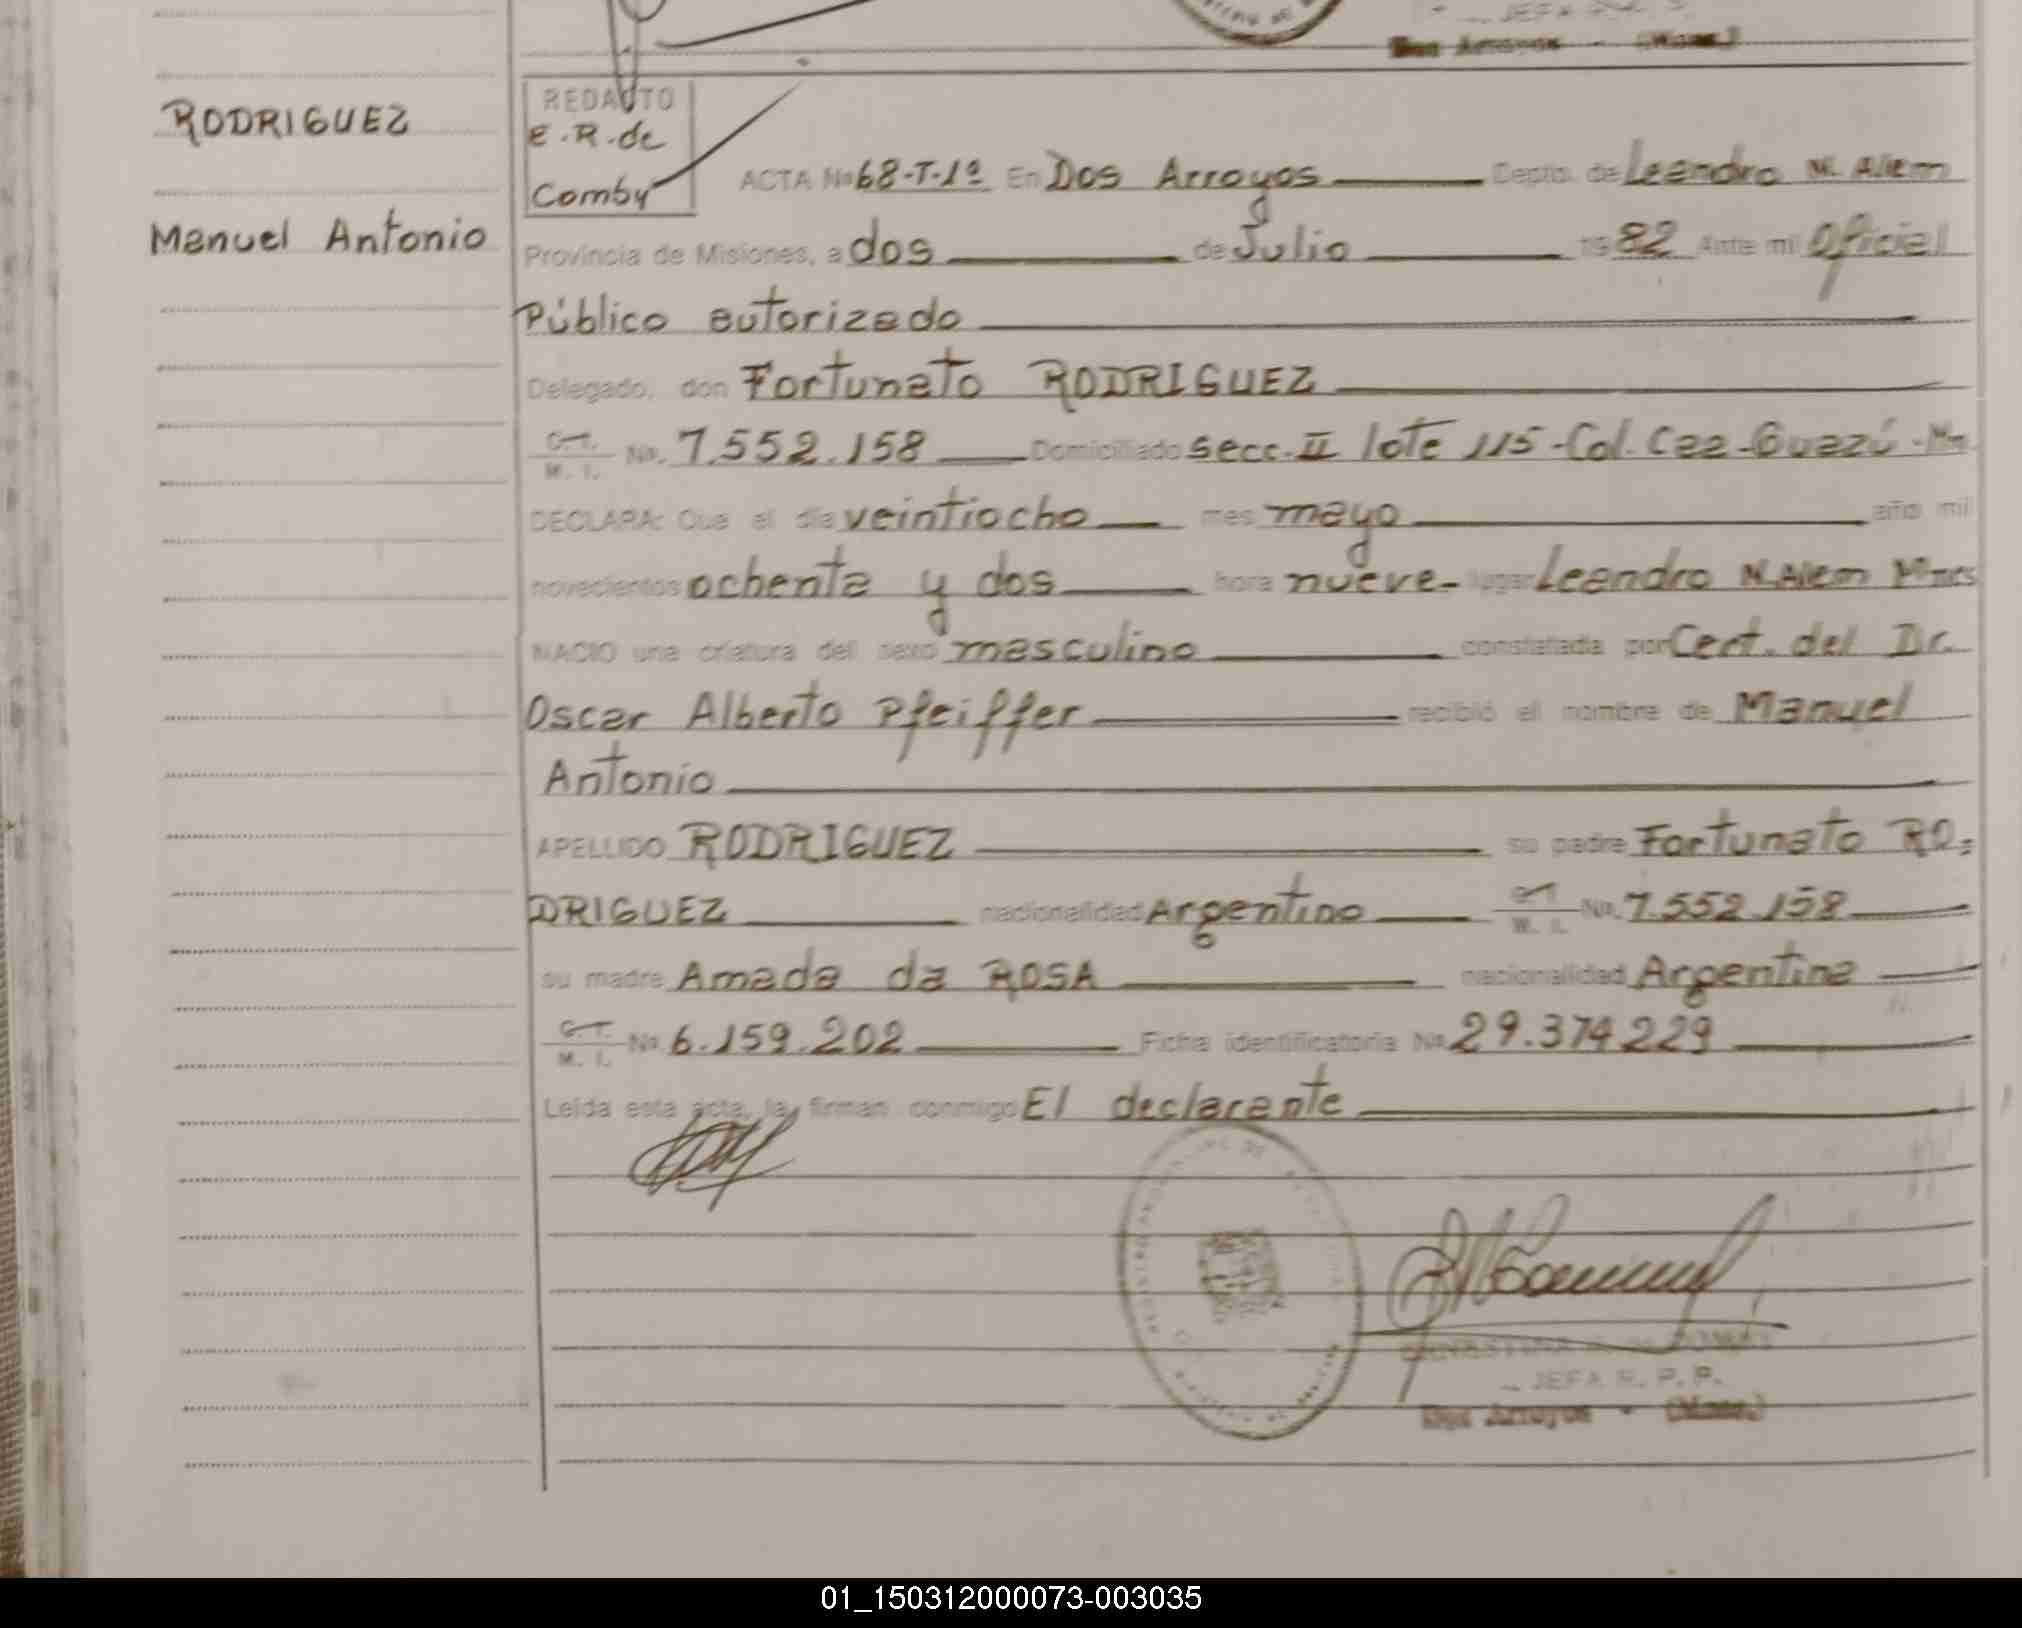 JEFA R. P. P.
Dos Arroyos - (Mnes.)
RODRIGUEZ
Manuel Antonio
REDACTO
E.R.de
Comby
ACTA No 68-T-1º En Dos Arroyos Depto. de Leandro N. Alem
Provincia de Misiones, a dos de Julio 1982 Ante mi Oficial
Público autorizado
Delegado, don Fortunato RODRIGUEZ
C.I. M. I. No. 7.552.158 Domiciliado secc. II lote 115-Col. Caa-Guazú-Mn
DECLARA: Que el día veintiocho mes mayo año mil
novecientos ochenta y dos hora nueve- lugar Leandro N. Alem Mnes
NACIO una criatura del sexo masculino constatada por Cert. del Dr.
Oscar Alberto Pfeiffer recibió el nombre de Manuel
Antonio
APELLIDO RODRIGUEZ su padre Fortunato RO=
DRIGUEZ nacionalidad Argentino C.I. M. I. No. 7.552.158
su madre Amada da ROSA nacionalidad Argentina
C.I. M. I. No. 6.159.202 Ficha identificatoria No. 29.374.229
Leída esta acta, la firman conmigo El declarante
JEFA R. P. P.
Dos Arroyos - (Mnes.)
01_150312000073-003035